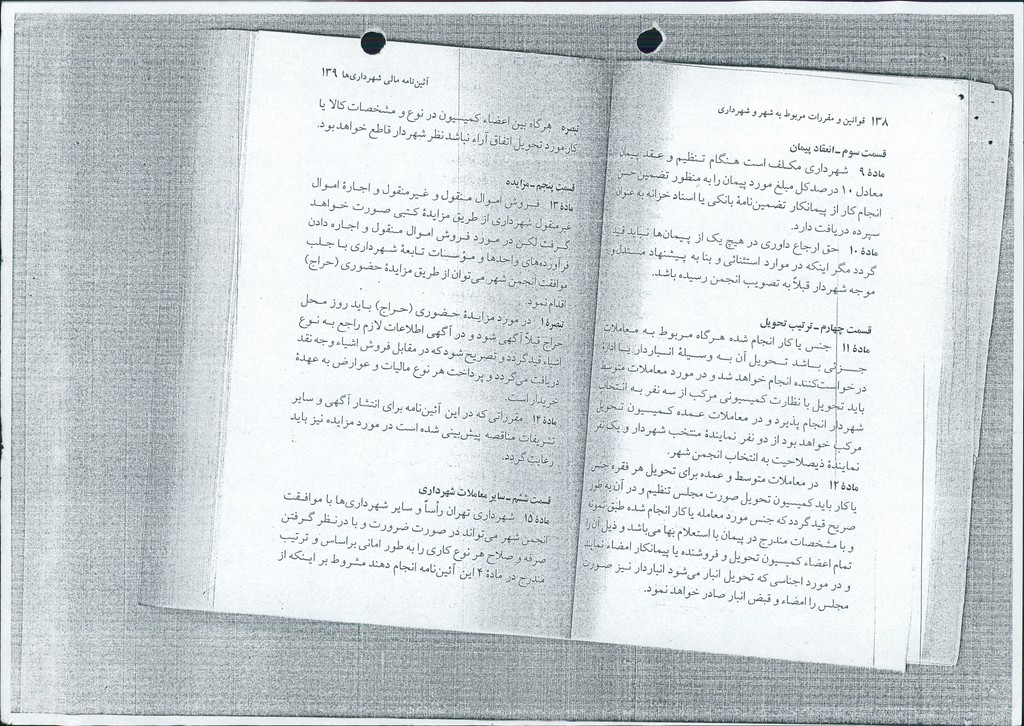 ۱۳۸ قوانین و مقررات مربوط به شهر و شهرداری
قسمت سوم ـ انعقاد پیمان
مادهٔ ۹ شهرداری مکلف است هنگام تنظیم و عقد پیمان
معادل ۱۰ درصد کل مبلغ مورد پیمان را به منظور تضمین حسن
انجام کار از پیمانکار تضمین‌نامهٔ بانکی یا اسناد خزانه به عنوان
سپرده دریافت دارد.
مادهٔ ۱۰ حق ارجاع داوری در هیچ یک از پیمان‌ها نباید قید
گردد مگر اینکه در موارد استثنائی و بنا به پیشنهاد مستدل و
موجه شهردار قبلاً به تصویب انجمن رسیده باشد.
قسمت چهارم ـ ترتیب تحویل
مادهٔ ۱۱ جنس یا کار انجام شده هرگاه مربوط به معاملات
جزئی باشد تحویل آن به وسیلهٔ انباردار یا ادارهٔ
درخواست‌کننده انجام خواهد شد و در مورد معاملات متوسط
باید تحویل با نظارت کمیسیونی مرکب از سه نفر به انتخاب
شهردار انجام پذیرد و در معاملات عمده کمیسیون تحویل
مرکب خواهد بود از دو نفر نمایندهٔ منتخب شهردار و یک نفر
نمایندهٔ ذیصلاحیت به انتخاب انجمن شهر.
مادهٔ ۱۲ در معاملات متوسط و عمده برای تحویل هر فقره جنس
یا کار باید کمیسیون تحویل صورت مجلس تنظیم و در آن به طور
صریح قید گردد که جنس مورد معامله یا کار انجام شده طبق نمونه
و با مشخصات مندرج در پیمان با استعلام بها می‌باشد و ذیل آن را
تمام اعضاء کمیسیون تحویل و فروشنده یا پیمانکار امضاء نمایند
و در مورد اجناسی که تحویل انبار می‌شود انباردار نیز صورت
مجلس را امضاء و قبض انبار صادر خواهد نمود.
آئین‌نامه مالی شهرداری‌ها ۱۳۹
تبصره هرگاه بین اعضاء کمیسیون در نوع و مشخصات کالا یا
کار مورد تحویل اتفاق آراء نباشد نظر شهردار قاطع خواهد بود.
قسمت پنجم ـ مزایده
مادهٔ ۱۳ فروش اموال منقول و غیرمنقول و اجارهٔ اموال
غیرمنقول شهرداری از طریق مزایدهٔ کتبی صورت خواهد
گرفت لکن در مورد فروش اموال منقول و اجاره دادن
فرآورده‌های واحدها و مؤسسات تابعهٔ شهرداری با جلب
موافقت انجمن شهر می‌توان از طریق مزایدهٔ حضوری (حراج)
اقدام نمود.
تبصرهٔ ۱ در مورد مزایدهٔ حضوری (حراج) باید روز محل
حراج قبلاً آگهی شود و در آگهی اطلاعات لازم راجع به نوع
اشیاء قید گردد و تصریح شود که در مقابل فروش اشیاء وجه نقد
دریافت می‌گردد و پرداخت هر نوع مالیات و عوارض به عهدهٔ
خریدار است.
مادهٔ ۱۴ مقرراتی که در این آئین‌نامه برای انتشار آگهی و سایر
تشریفات مناقصه پیش‌بینی شده است در مورد مزایده نیز باید
رعایت گردد.
قسمت ششم ـ سایر معاملات شهرداری
مادهٔ ۱۵ شهرداری تهران رأساً و سایر شهرداری‌ها با موافقت
انجمن شهر می‌تواند در صورت ضرورت و با در نظر گرفتن
صرفه و صلاح هر نوع کاری را به طور امانی براساس و ترتیب
مندرج در مادهٔ ۴ این آئین‌نامه انجام دهند مشروط بر اینکه از